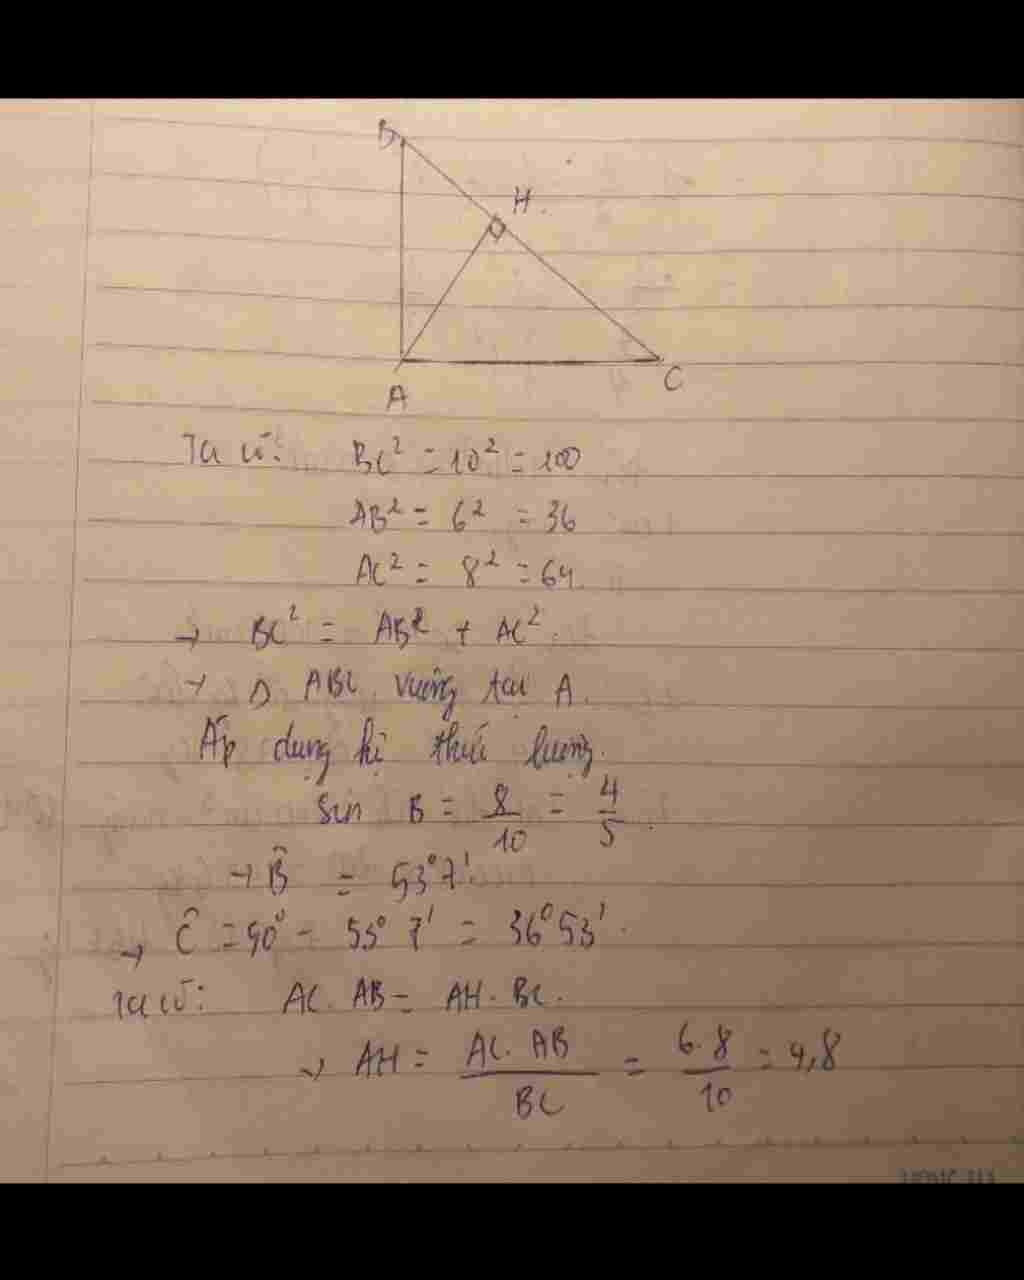 B
H.
A
C
Ta có: BC² = 10² = 100
AB² = 6² = 36
AC² = 8² = 64.
→ BC² = AB² + AC².
→ Δ ABC vuông tại A.
Áp dụng hệ thức lượng.
Sin B = 8/10 = 4/5.
→ B̂ = 53°7'
→ Ĉ = 90° - 53° 7' = 36°53'.
Ta có: AC. AB = AH. BC.
→ AH = AC. AB / BC = 6.8 / 10 = 4,8